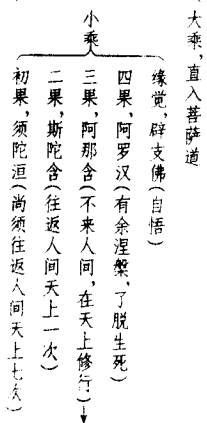 大乘，直入菩萨道
小乘
缘觉，辟支佛(自悟)
四果，阿罗汉(有余涅槃，了脱生死)
三果，阿那含(不来人间，在天上修行)
二果，斯陀含(往返人间天上一次)
初果，须陀洹(尚须往返人间天上七次)